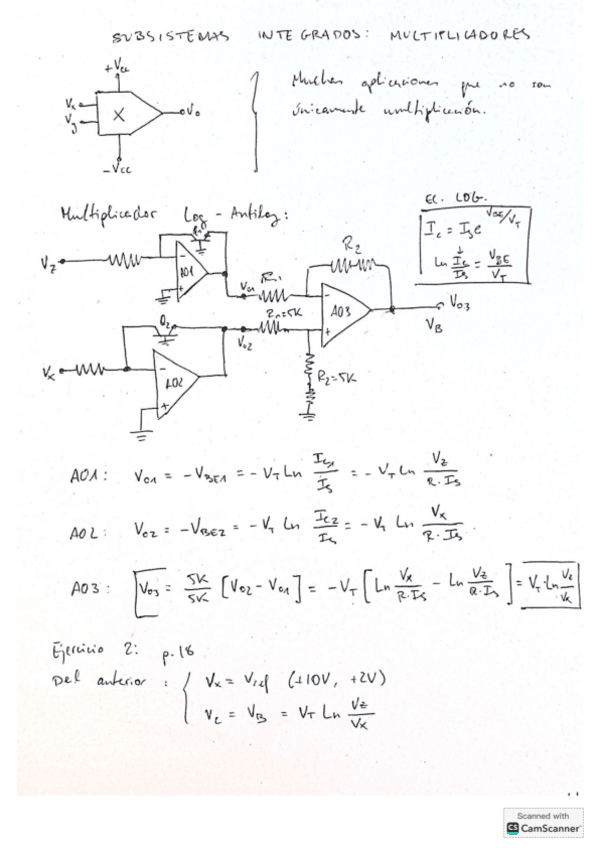 SUBSISTEMAS INTEGRADOS: MULTIPLICADORES
+Vcc
Vx
Vy
X
Vo
-Vcc
Muchas aplicaciones que no son
únicamente multiplicación.
Multiplicador Log - Antilog:
EC. LOG.
Ic = Is e^VBE/VT
Ln Ic/Is = VBE/VT
Vz
AO1
Vo1
R1
R2
R1=5K
AO3
Vo3
VB
Q2
Vo2
Vx
AO2
R2=5K
AO1: Vo1 = -VBE1 = -VT Ln Ic1/Is = -VT Ln Vz/R·Is
AO2: Vo2 = -VBE2 = -VT Ln Ic2/Is = -VT Ln Vx/R·Is.
AO3: Vo3 = 5K/5K [Vo2 - Vo1] = -VT [Ln Vx/R·Is - Ln Vz/R·Is] = VT·Ln Vz/Vx
Ejercicio 2: p.18
Del anterior: Vx = Vref (+10V, +2V)
Vz = VB = VT Ln Vz/Vx
Scanned with
CS CamScanner